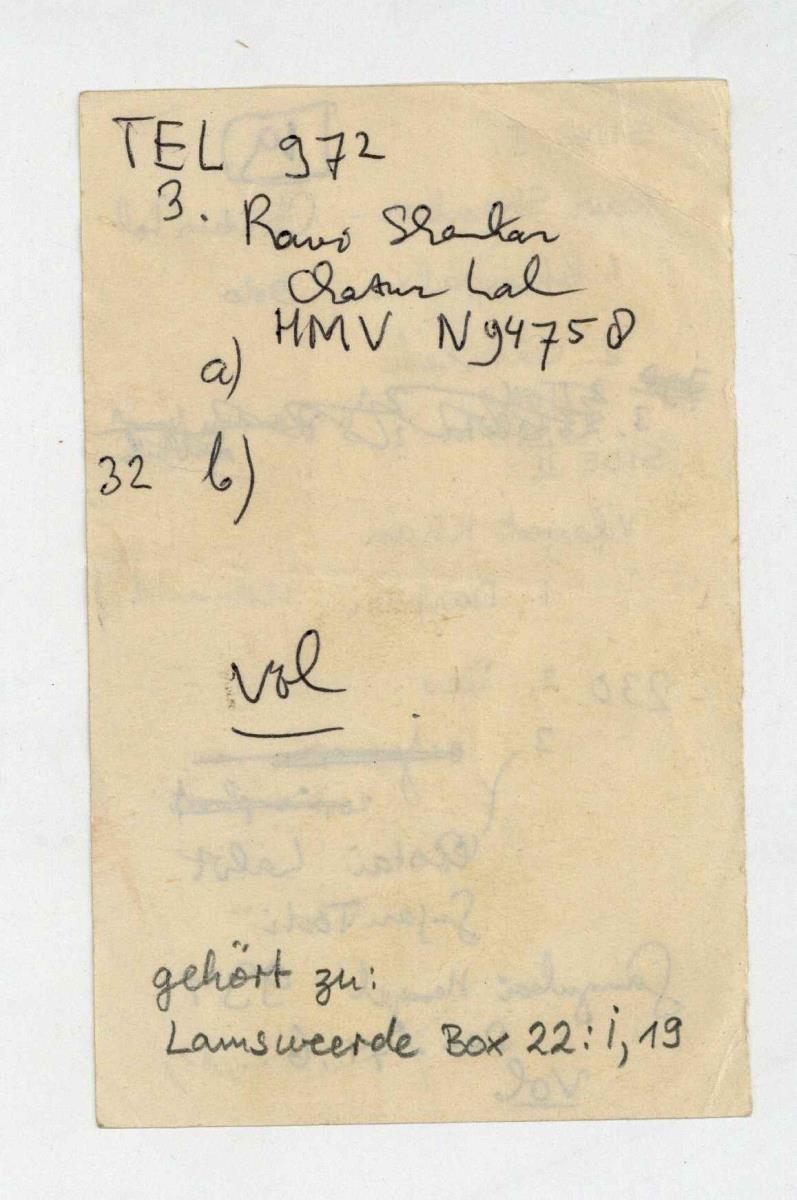 TEL 972
3. Ravi Shankar
Chatur Lal
HMV N94758
a)
32 b)
vol
gehört zu:
Lamsweerde Box 22: i, 19